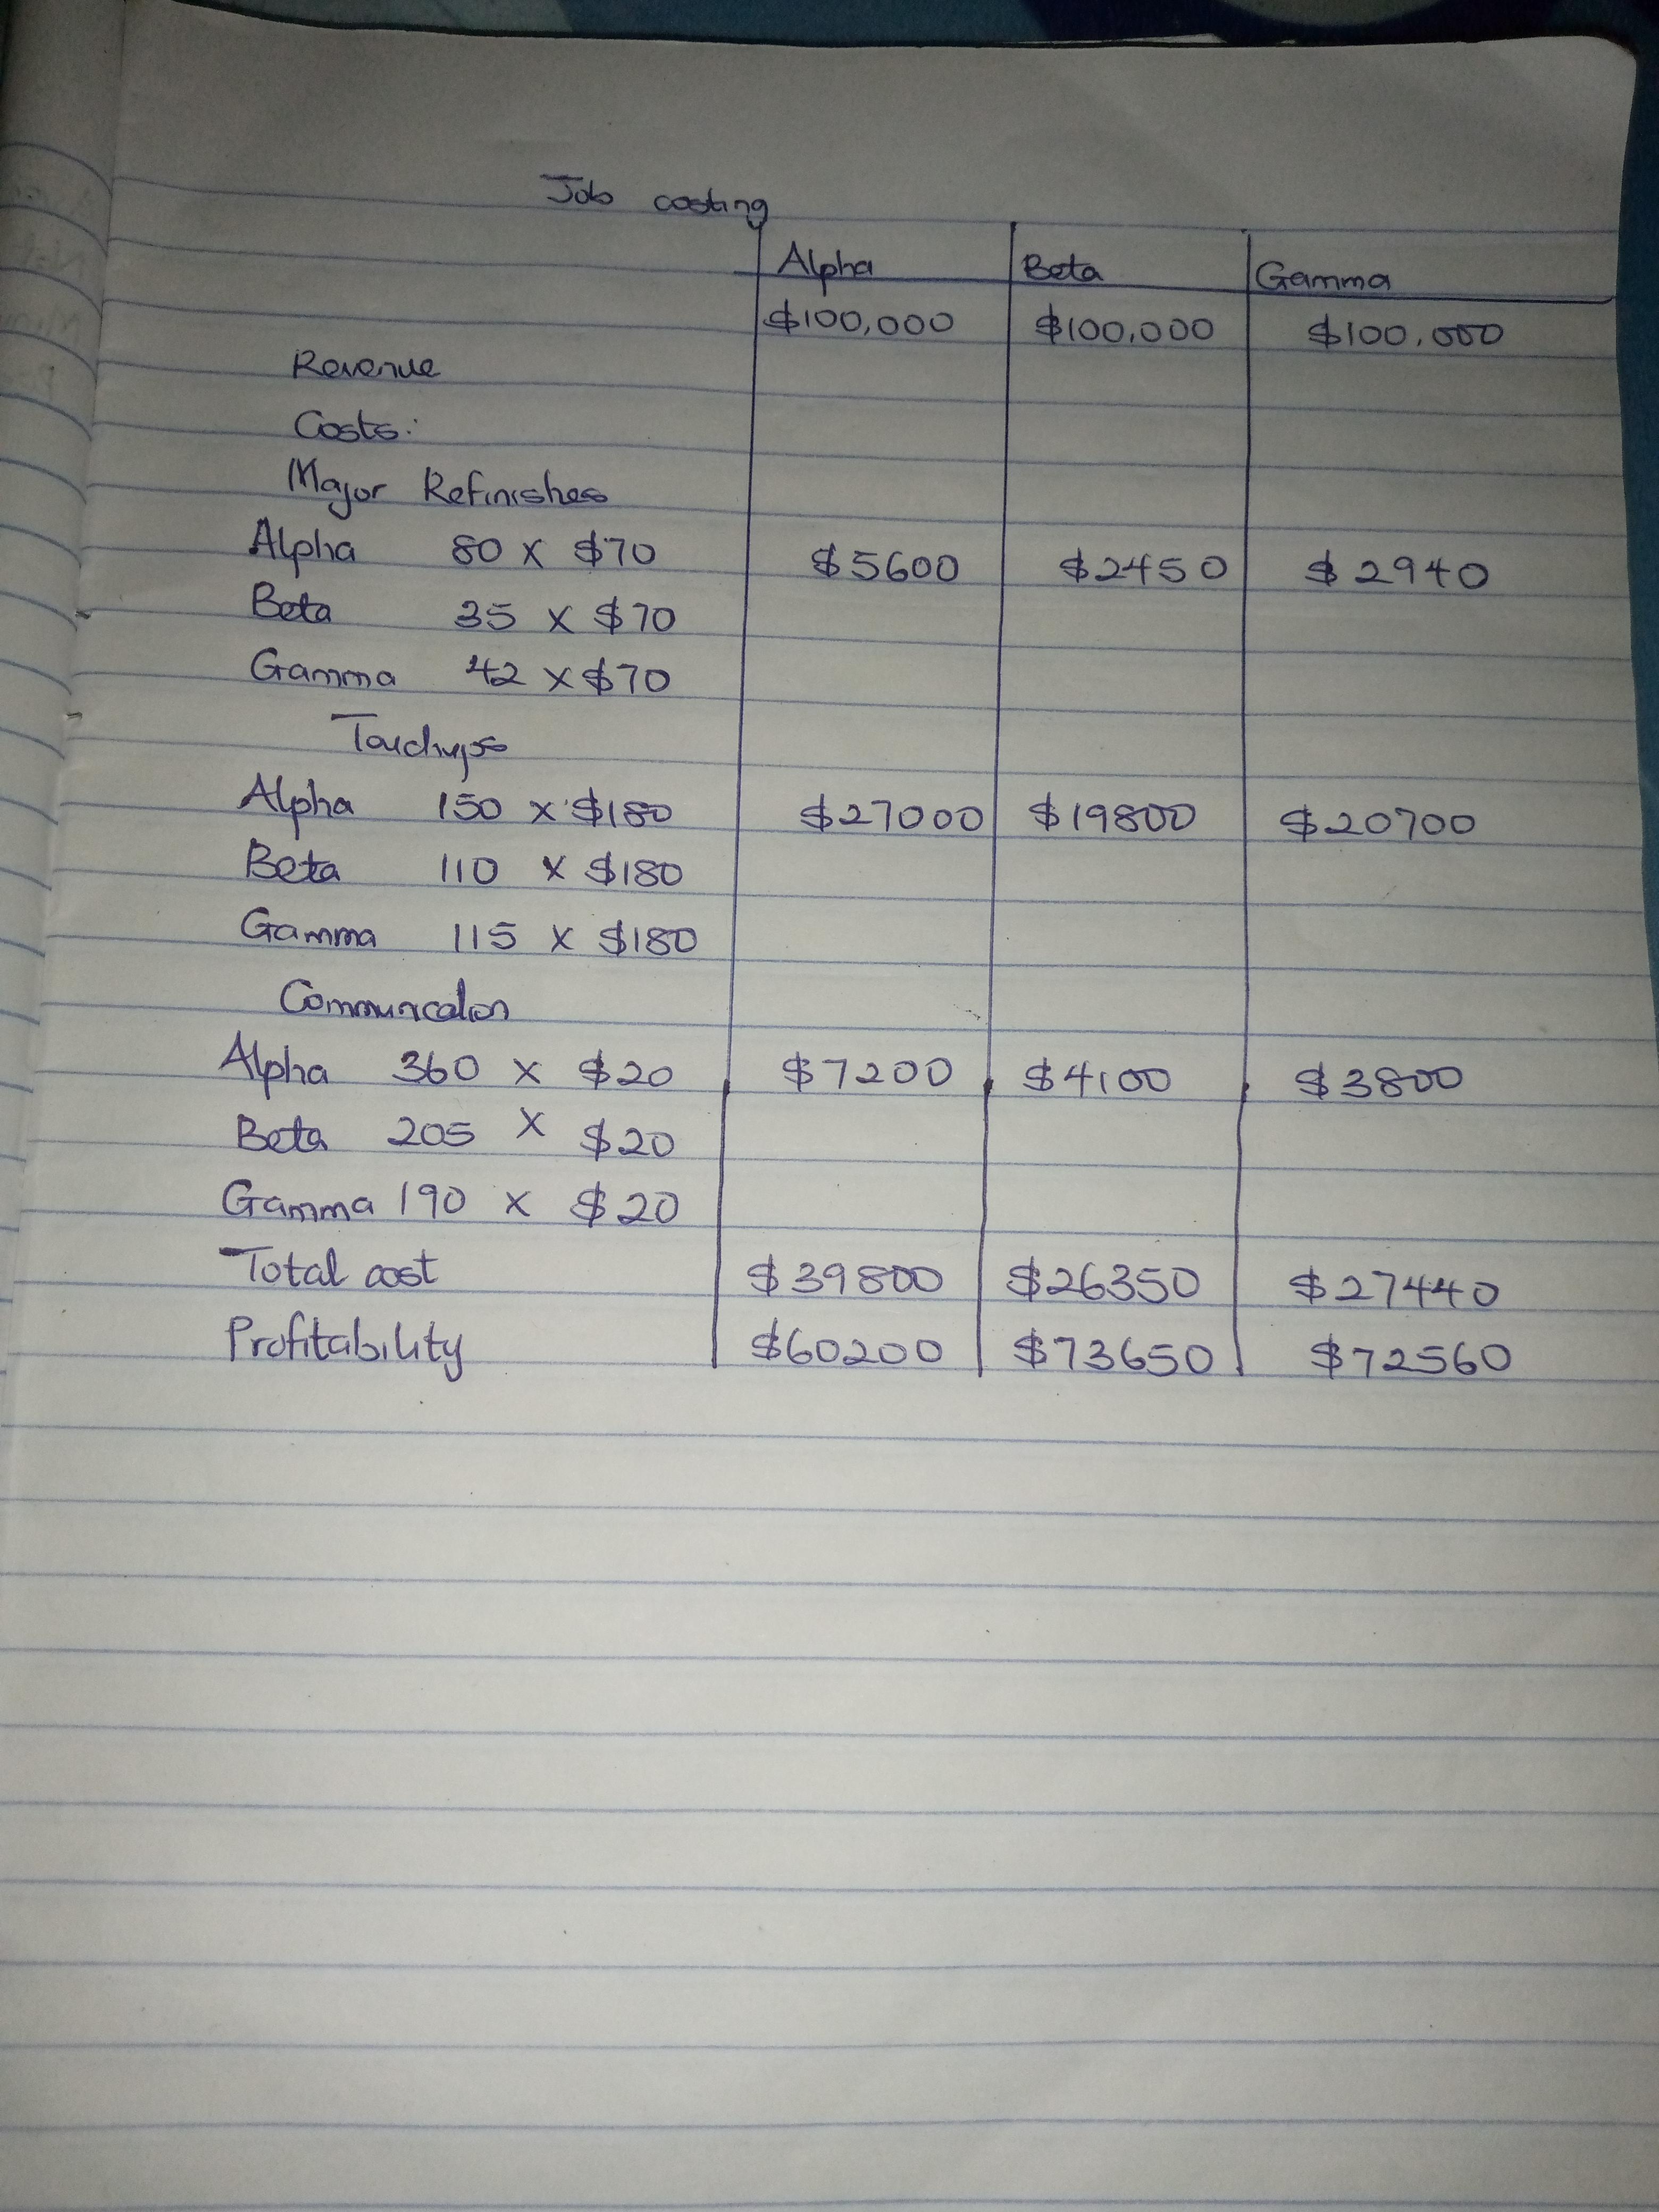 Job costing
Alpha Beta Gamma
$100,000 $100,000 $100,000
Revenue
Costs:
Major Refinishes
Alpha 80 x $70 $5600 $2450 $2940
Beta 35 x $70
Gamma 42 x $70
Alpha 150 x $180 $27000 $19800 $20700
Beta 110 x $180
Gamma 115 x $180
Alpha 360 x $20 $7200 $4100 $3800
Beta 205 x $20
Gamma 190 x $20
Total cost $39800 $26350 $27440
Profitability $60200 $73650 $72560